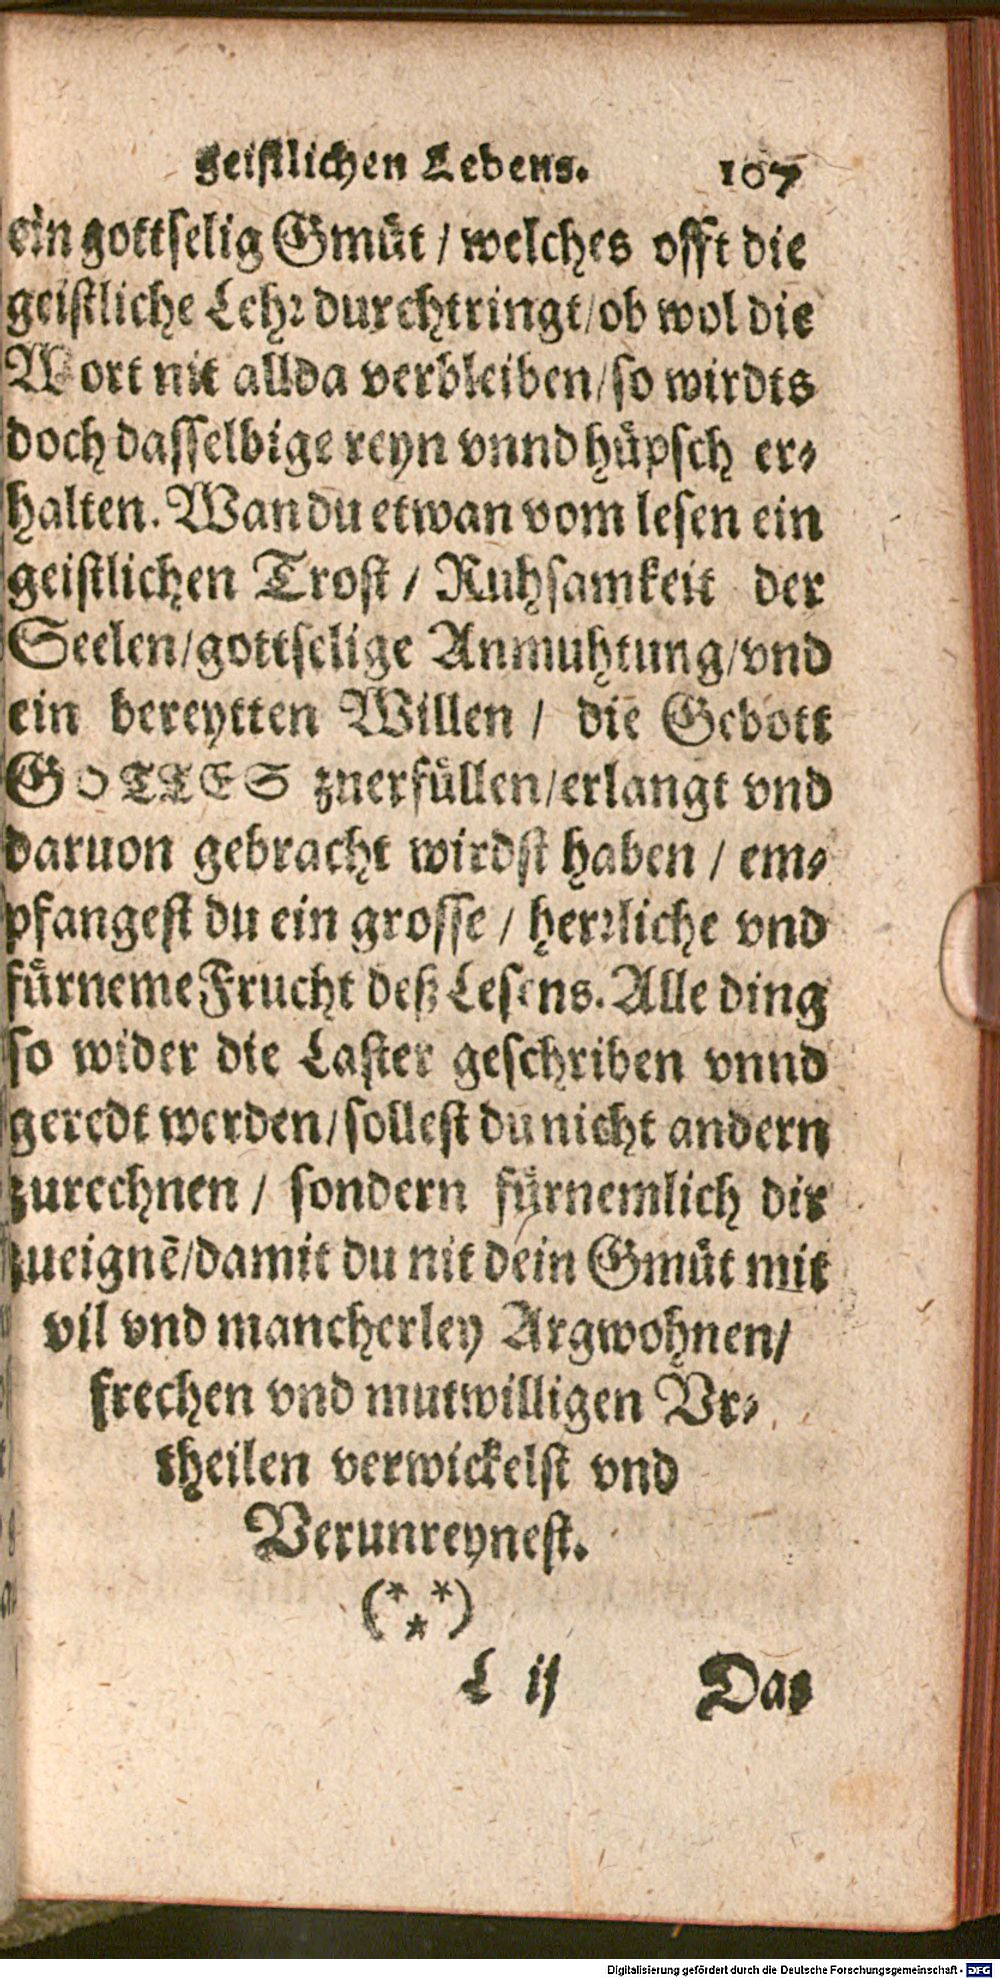 geistlichen Lebens. 107
ein gottselig Gmüt / welches offt die
geistliche Lehr durchtringt / ob wol die
Wort nit allda verbleiben / so wirdts
doch dasselbige reyn vnnd hüpsch er⸗
halten. Wan du etwan vom lesen ein
geistlichen Trost / Ruhsamkeit der
Seelen / gottselige Anmuhtung / vnd
ein bereytten Willen / die Gebott
GOTTES zuerfüllen / erlangt vnd
daruon gebracht wirdst haben / em⸗
pfangest du ein grosse / herrliche vnd
fürneme Frucht deß Lesens. Alle ding
so wider die Laster geschriben vnnd
geredt werden / sollest du nicht andern
zurechnen / sondern fürnemlich dir
zueignē / damit du nit dein Gmüt mit
vil vnd mancherley Argwohnen /
frechen vnd mutwilligen Vr⸗
theilen verwickelst vnd
Verunreynest.
(***)
L ij Das
Digitalisierung gefördert durch die Deutsche Forschungsgemeinschaft - DFG